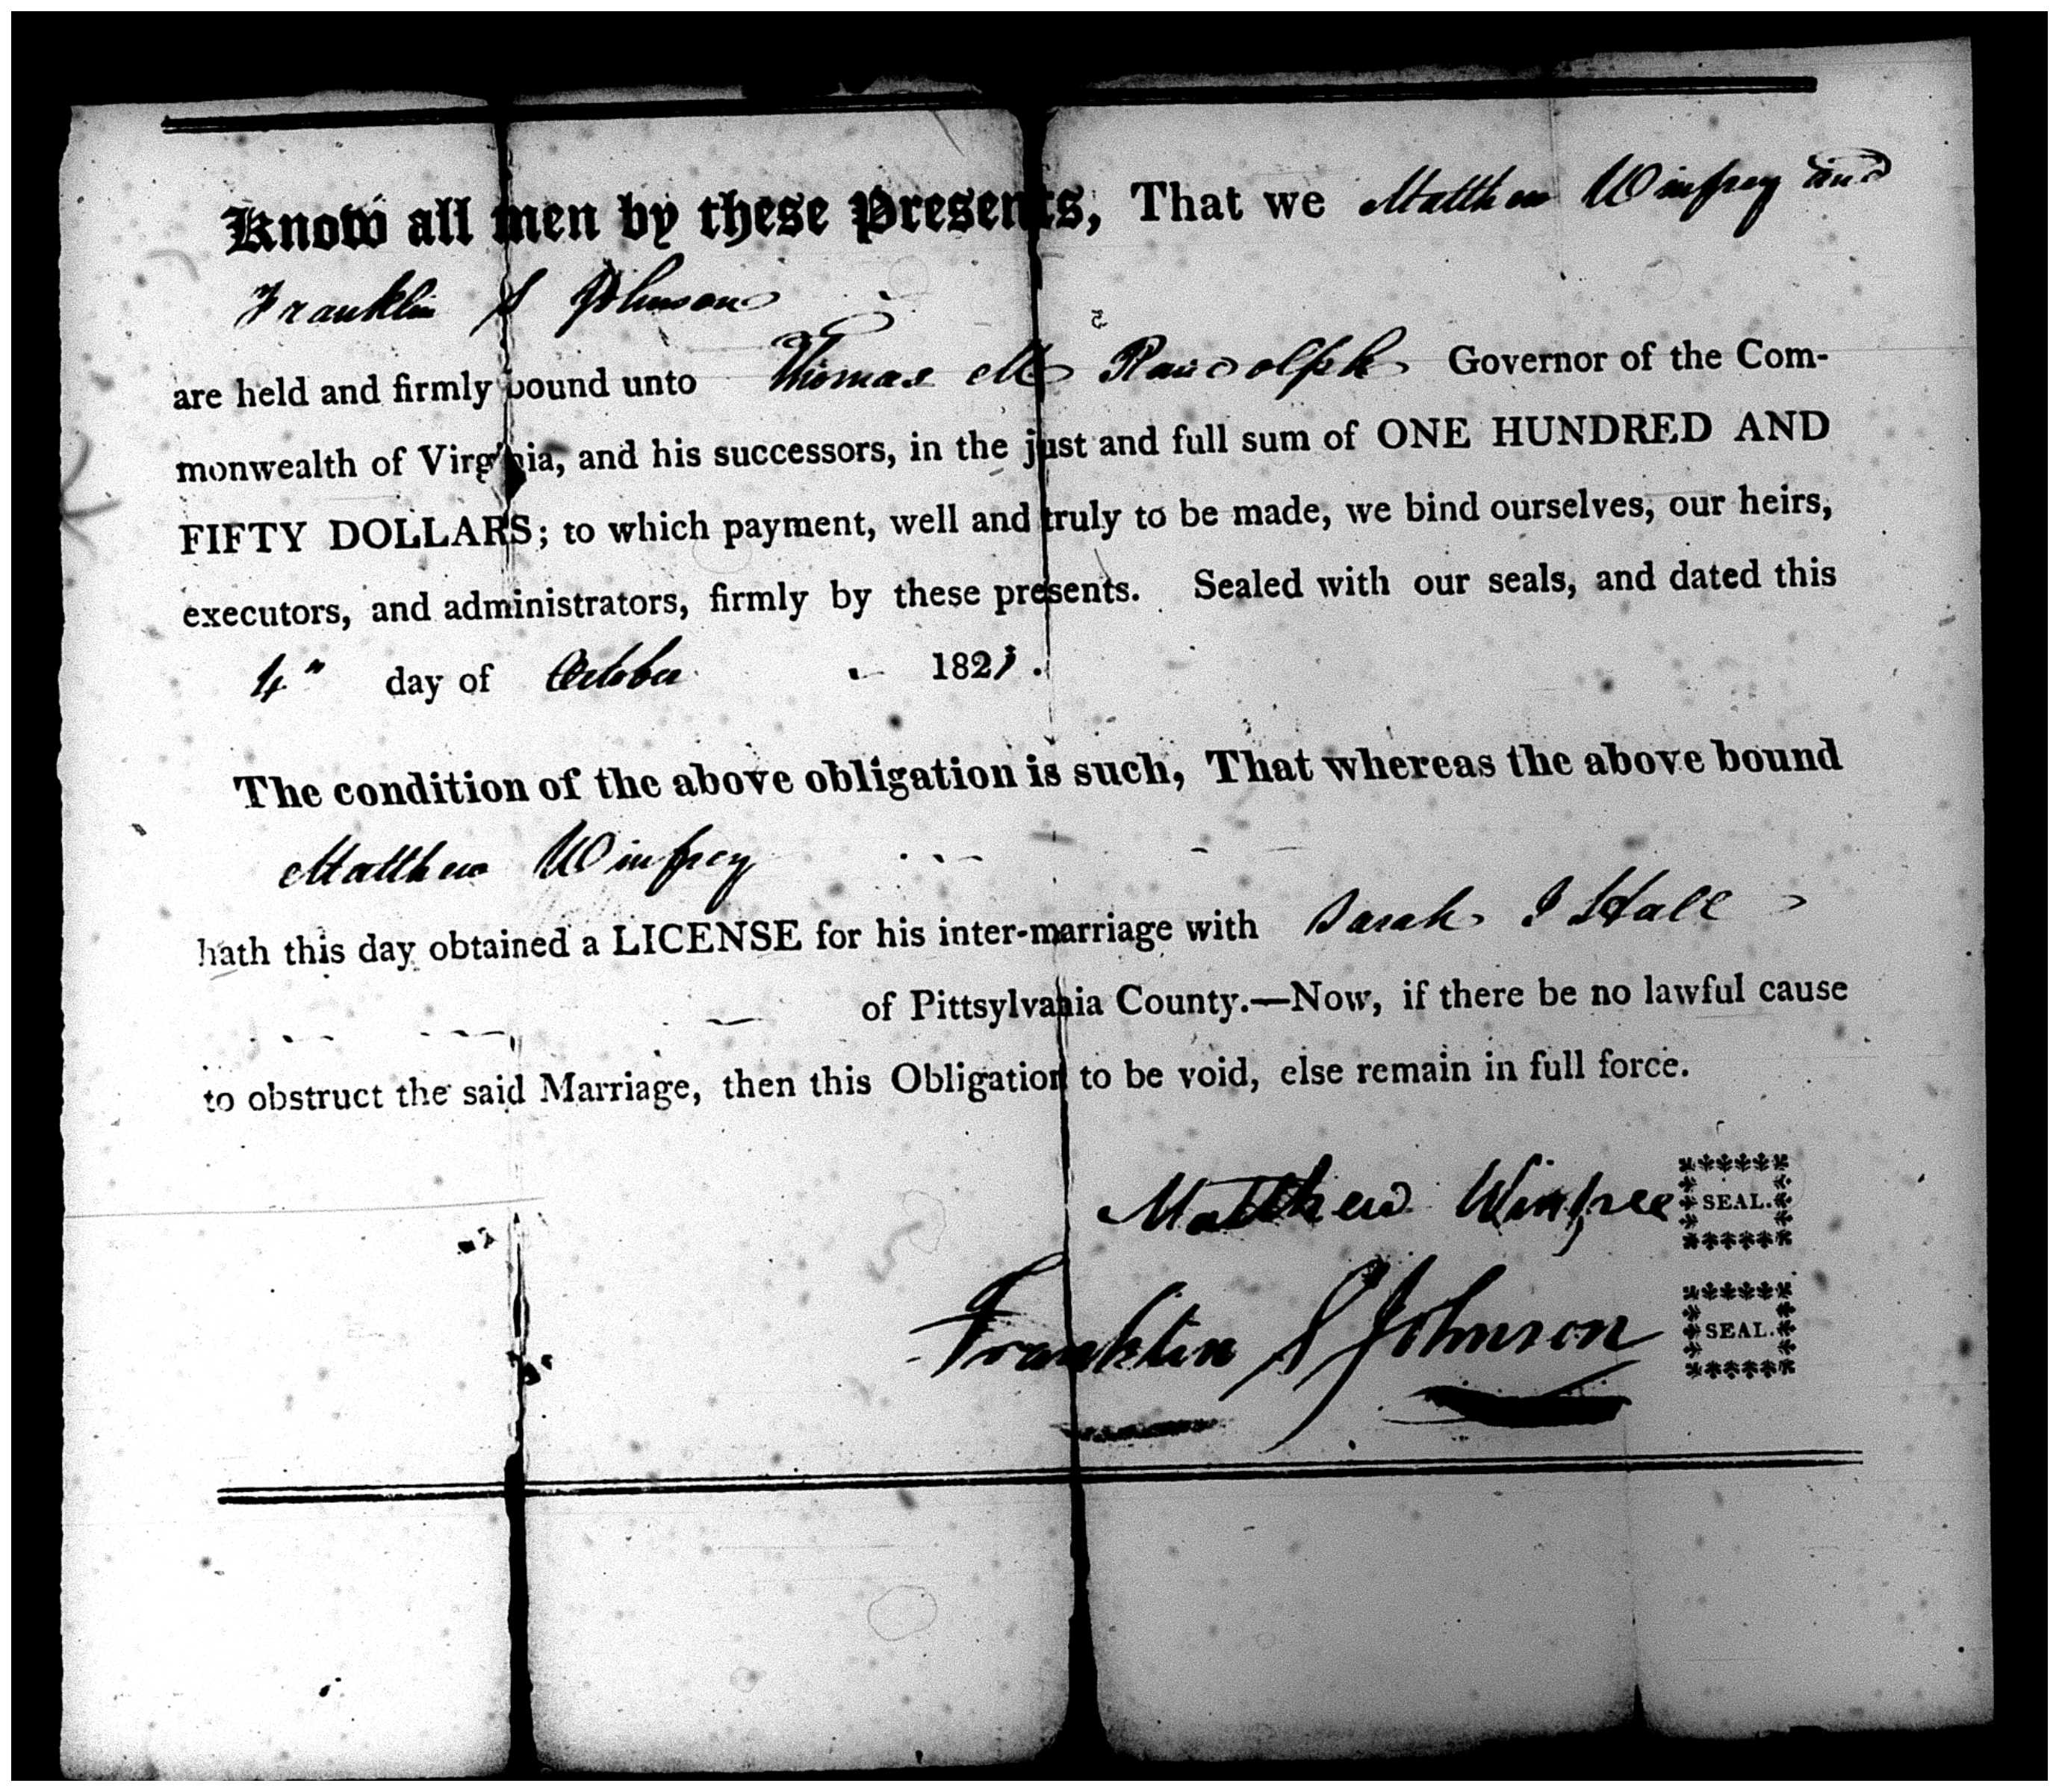 Know all men by these Presents, That we Matthew Winfrey and
Franklin S Johnson
are held and firmly bound unto Thomas M Randolph Governor of the Com-
monwealth of Virginia, and his successors, in the just and full sum of ONE HUNDRED AND
FIFTY DOLLARS; to which payment, well and truly to be made, we bind ourselves, our heirs,
executors, and administrators, firmly by these presents. Sealed with our seals, and dated this
4" day of October 1821.
The condition of the above obligation is such, That whereas the above bound
Matthew Winfrey
hath this day obtained a LICENSE for his inter-marriage with Sarah J Hall
of Pittsylvania County.—Now, if there be no lawful cause
to obstruct the said Marriage, then this Obligation to be void, else remain in full force.
Matthew Winfree SEAL.
Franklin S Johnson SEAL.